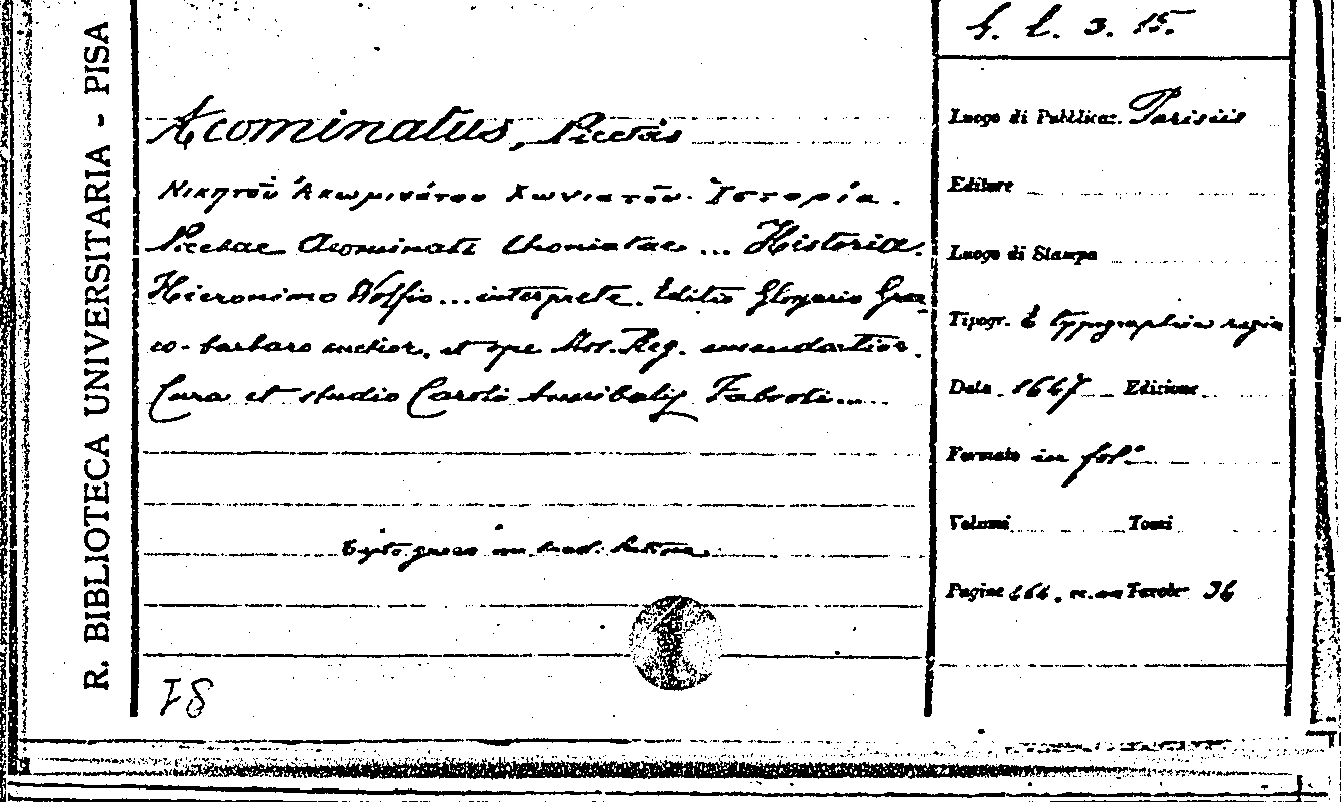 R. BIBLIOTECA UNIVERSITARIA - PISA
3. 15.
Acominatus, Nicetas
Νικητοῦ Ἀκωμινάτου Χωνιατοῦ Ἱστορία.
Nicetae Acominati Choniatae ... Historia.
Hieronimo Wolfio... interprete. Editio Glossario Grae
co-barbaro auctior, et ope Mss. Reg. emendatior.
Cura et studio Caroli Annibalis Fabroti....
Testo greco con trad. latina.
Luogo di Pubblicaz. Parisiis
Editore
Luogo di Stampa
Tipogr. E typographia regia
Data 1647 Edizione
Formato in fol.°
Volumi Tomi
Pagine Tavole 36